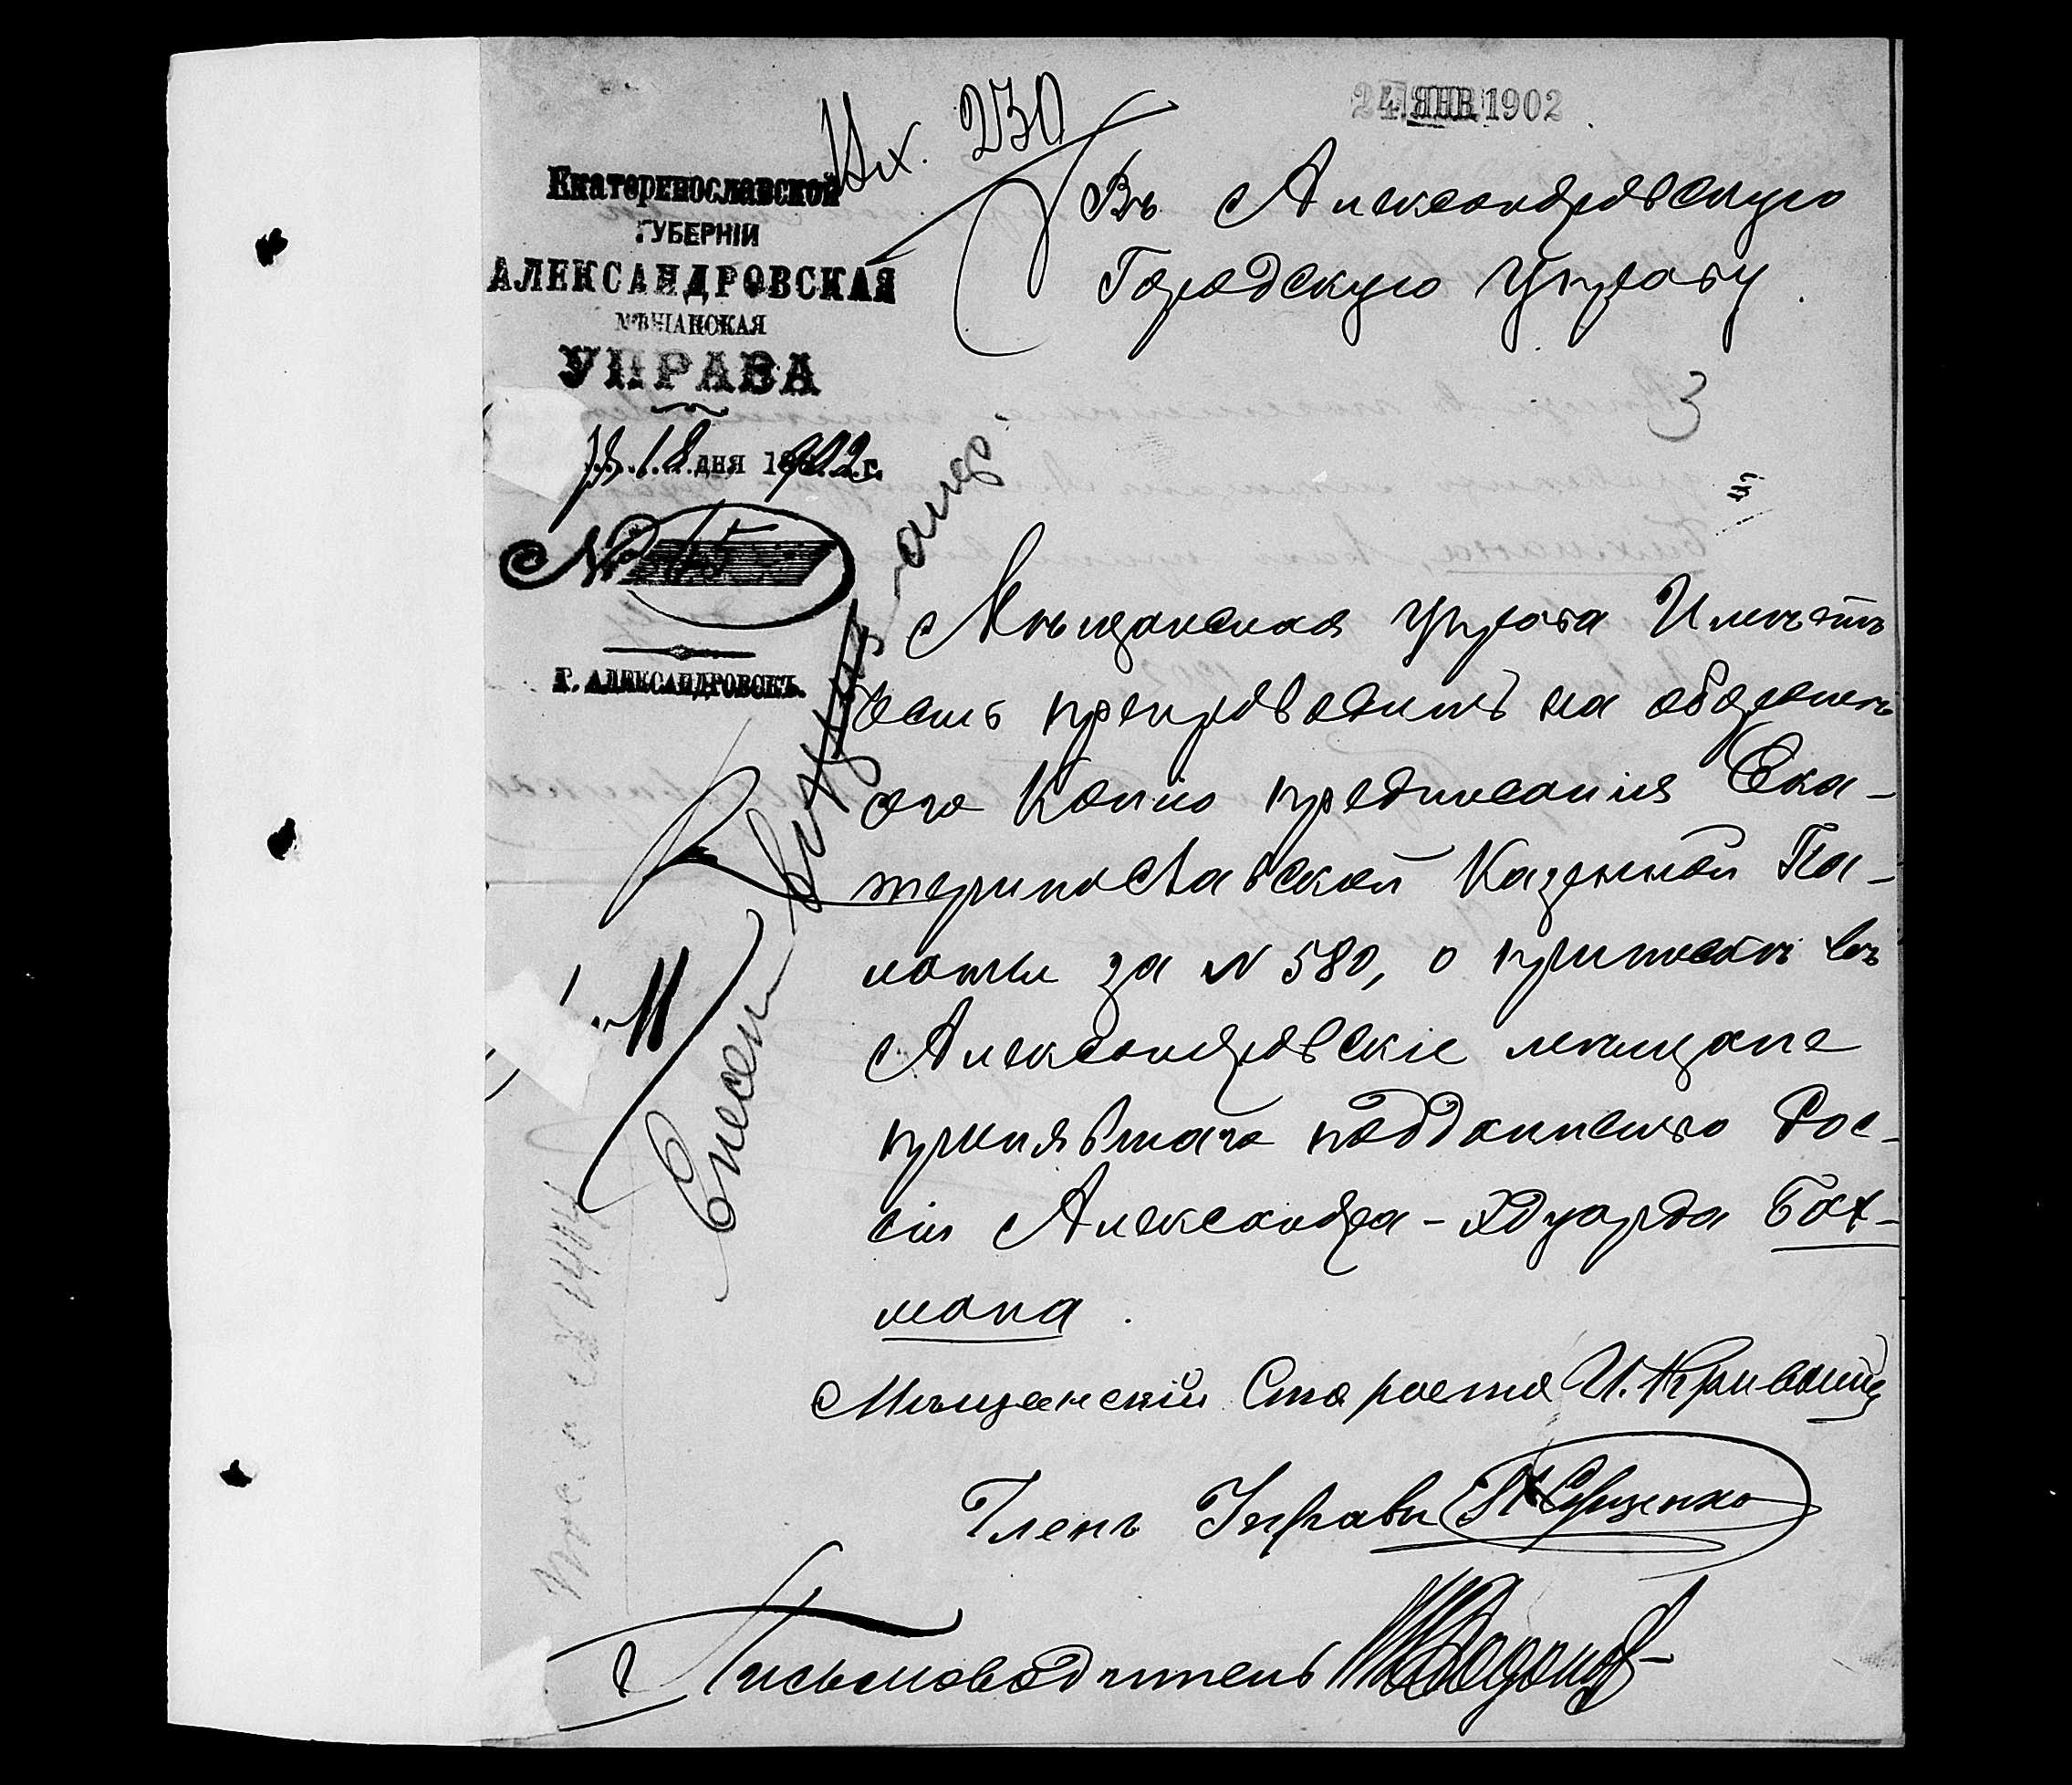 Вх. 230
24 ЯНВ 1902
Екатеринославской
ГУБЕРНІИ
АЛЕКСАНДРОВСКАЯ
МѢЩАНСКАЯ
УПРАВА
18 дня 1902 г.
№ 15
Г. АЛЕКСАНДРОВСКЪ.
Въ Александровскую
Городскую Управу.
3
Мѣщанская Управа Имѣетъ
честь препроводить на
Копію предписанія Ека-
теринославской Казенной Па-
латы за N 580, о припискѣ въ
Александровскіе мѣщане
принявшаго подданство Рос-
сіи Александра-Эдуарда Бах-
мана.
Мѣщанскій Староста И.
Членъ Управы
Письмоводитель